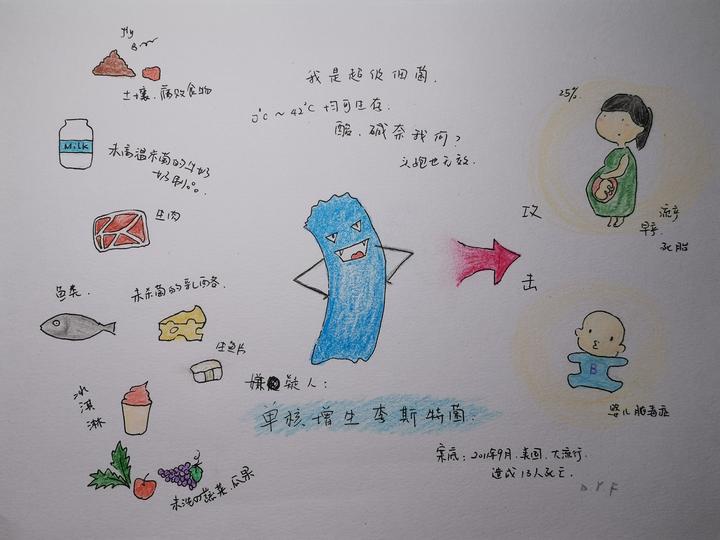 土壤、腐败食物
Milk
未高温杀菌的牛奶
奶制品
生肉
鱼类
未杀菌的乳酪
生鱼片
冰淇淋
未洗的蔬菜、瓜果
我是超级细菌.
0℃~42℃ 均可生存.
酸、碱奈我何?
头孢也无效.
嫌疑人:
单核增生李斯特菌.
攻
击
25%
流产
早产
死胎
B
婴儿脑毒症
案底: 2011年9月.美国.大流行.
造成13人死亡.
D.Y.F